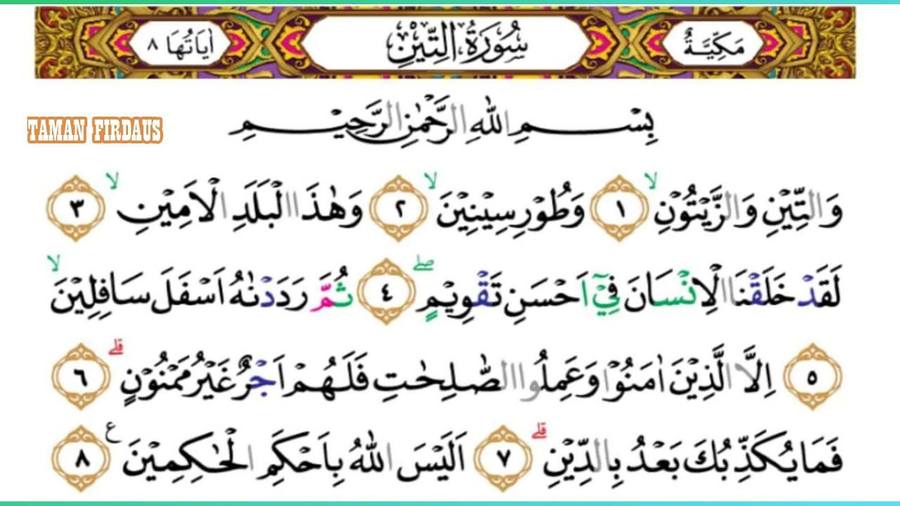 مَكِّيَّةٌ سُوْرَةُ التِّيْنِ اٰيَاتُهَا ٨
TAMAN FIRDAUS
بِسْمِ اللّٰهِ الرَّحْمٰنِ الرَّحِيْمِ
وَالتِّيْنِ وَالزَّيْتُوْنِۙ ١ وَطُوْرِسِيْنِيْنَۙ ٢ وَهٰذَا الْبَلَدِ الْاَمِيْنِۙ ٣
لَقَدْ خَلَقْنَا الْاِنْسَانَ فِيْٓ اَحْسَنِ تَقْوِيْمٍۖ ٤ ثُمَّ رَدَدْنٰهُ اَسْفَلَ سَافِلِيْنَۙ
٥ اِلَّا الَّذِيْنَ اٰمَنُوْا وَعَمِلُوا الصّٰلِحٰتِ فَلَهُمْ اَجْرٌ غَيْرُ مَمْنُوْنٍۗ ٦
فَمَا يُكَذِّبُكَ بَعْدُ بِالدِّيْنِۗ ٧ اَلَيْسَ اللّٰهُ بِاَحْكَمِ الْحٰكِمِيْنَ ࣖ ٨